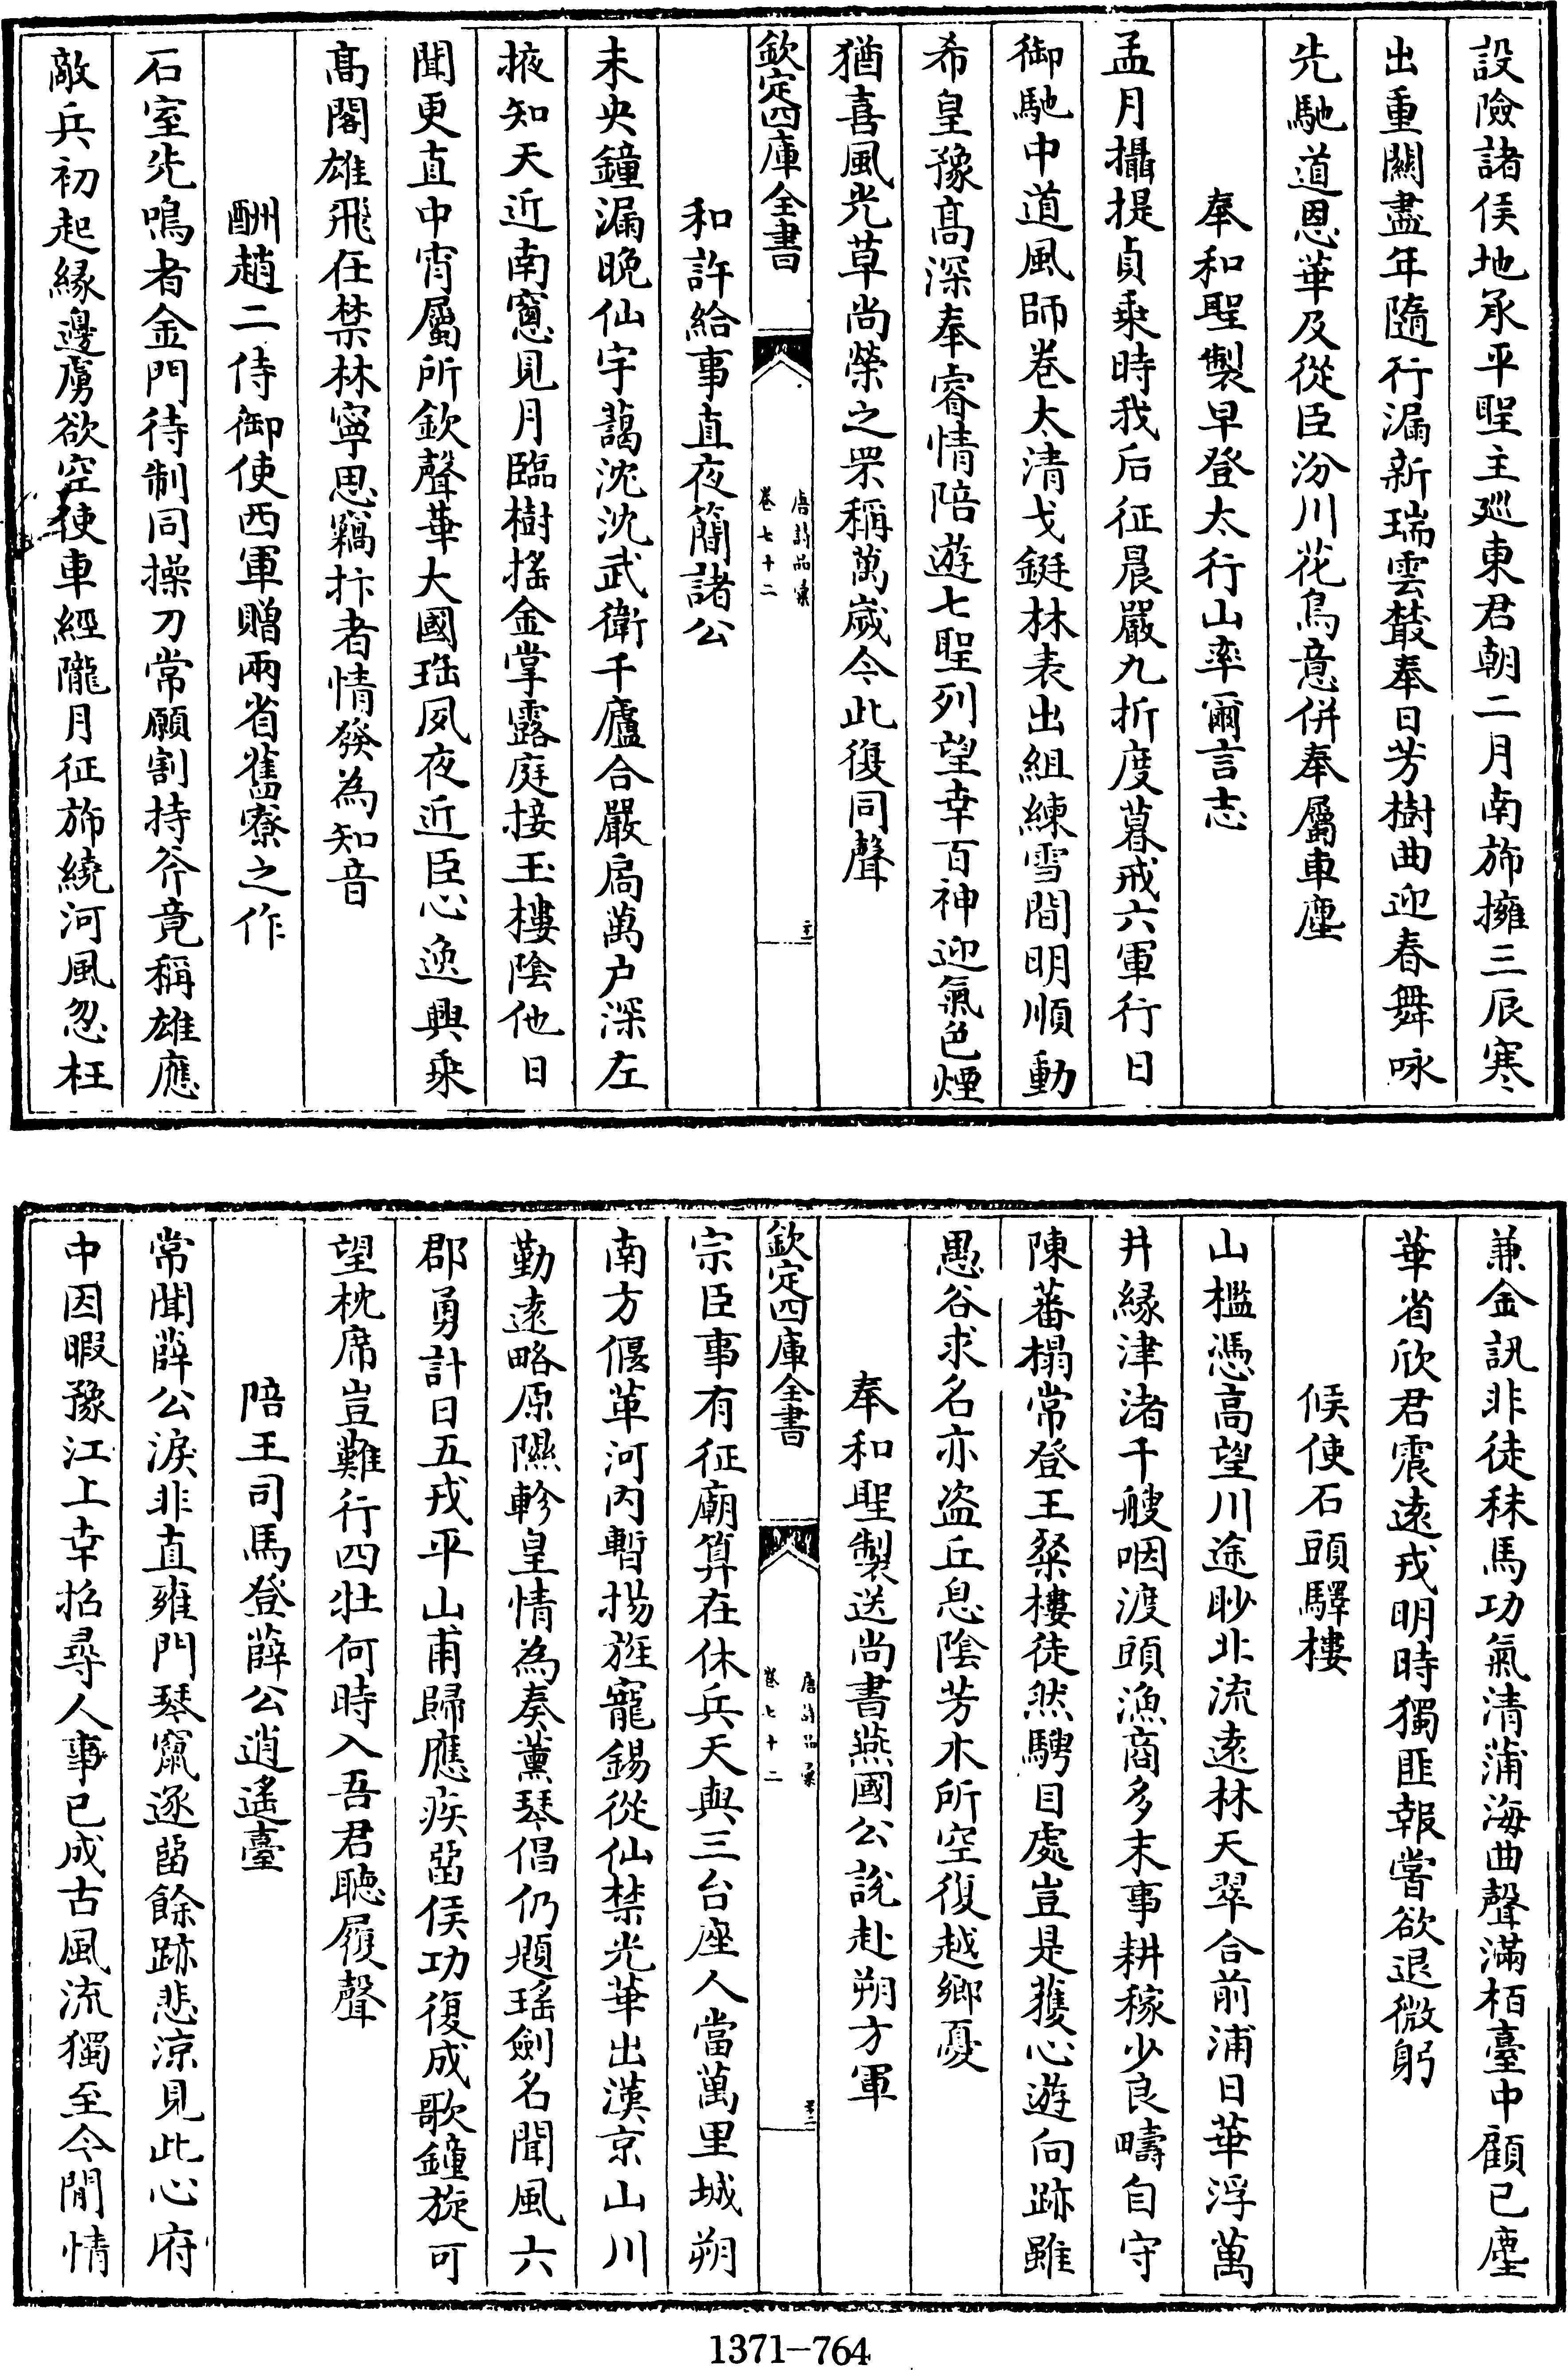 設險諸侯地承平聖主巡東君朝二月南斾擁三辰寒
出重關盡年隨行漏新瑞雲叢奉日芳樹曲迎春舞咏
先馳道恩華及從臣汾川花鳥意併奉屬車塵
奉和聖製早登太行山率爾言志
孟月攝提貞乘時我后征晨嚴九折度暮戒六軍行日
御馳中道風師卷太清戈鋋林表出組練雪間明順動
希皇豫高深奉睿情陪遊七聖列望幸百神迎氣色煙
猶喜風光草尚榮之罘稱萬歲今此復同聲
欽定四庫全書
唐詩品彙
卷七十二
主
和許給事直夜簡諸公
未央鐘漏晚仙宇藹沈沈武衛千廬合嚴扃萬户深左
掖知天近南窻見月臨樹搖金掌露庭接玉樓陰他日
聞更直中宵屬所欽聲華大國珤夙夜近臣心逸興乘
髙閣雄飛在禁林寧思竊抃者情發為知音
酬趙二侍御使西軍贈兩省舊寮之作
石室先鳴者金門待制同操刀常願割持斧竟稱雄應
敵兵初起緣邊虜欲空使車經隴月征斾繞河風忽枉
兼金訊非徒秣馬功氣清蒲海曲聲滿栢臺中顧己塵
華省欣君震遠戎明時獨匪報嘗欲退微躬
候使石頭驛樓
山檻憑高望川途眇北流遠林天翠合前浦日華浮萬
井緣津渚千艘咽渡頭漁商多末事耕稼少良疇自守
陳蕃榻常登王粲樓徒然騁目處豈是獲心遊向跡雖
愚谷求名亦盜丘息陰芳木所空復越鄉憂
奉和聖製送尚書燕國公說赴朔方軍
欽定四庫全書
唐詩品彙
卷七十二
宗臣事有征廟算在休兵天與三台座人當萬里城朔
南方偃革河內暫揚旌寵錫從仙禁光華出漢京山川
勤遠略原隰軫皇情為奏薰琴倡仍題瑤劍名聞風六
郡勇計日五戎平山甫歸應疾留侯功復成歌鐘旋可
望枕席豈難行四壯何時入吾君聽履聲
陪王司馬登薛公逍遙臺
常聞薛公淚非直雍門琴竄逐留餘跡悲涼見此心府
中因暇豫江上幸招尋人事已成古風流獨至今閒情
1371-764